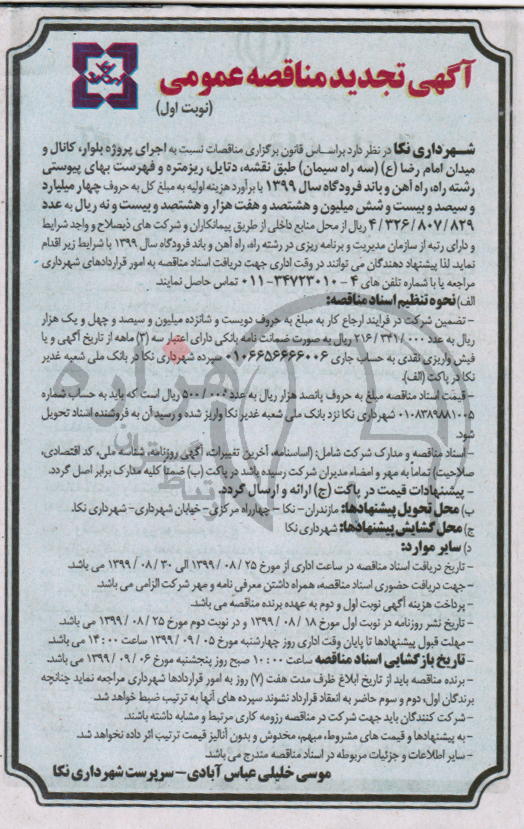 آگهی تجدید مناقصه عمومی
(نوبت اول)
شهرداری نکا در نظر دارد براساس قانون برگزاری مناقصات نسبت به اجرای پروژه بلوار، کانال و
میدان امام رضا (ع) (سه راه سیمان) طبق نقشه، دتایل، ریزمتره و فهرست بهای پیوستی
رشته راه، راه آهن و باند فرودگاه سال ۱۳۹۹ با برآورد هزینه اولیه به مبلغ کل به حروف چهار میلیارد
و سیصد و بیست و شش میلیون و هشتصد و هفت هزار و هشتصد و بیست و نه ریال به عدد
۴/۳۲۶/۸۰۷/۸۲۹ ریال از محل منابع داخلی از طریق پیمانکاران و شرکت های ذیصلاح و واجد شرایط
و دارای رتبه از سازمان مدیریت و برنامه ریزی در رشته راه، راه آهن و باند فرودگاه سال ۱۳۹۹ با شرایط زیر اقدام
نماید. لذا پیشنهاد دهندگان می توانند در وقت اداری جهت دریافت اسناد مناقصه به امور قراردادهای شهرداری
مراجعه یا با شماره تلفن های ۴-۳۴۷۲۳۰۱۰-۰۱۱ تماس حاصل نمایند.
الف) نحوه تنظیم اسناد مناقصه:
- تضمین شرکت در فرایند ارجاع کار به مبلغ به حروف دویست و شانزده میلیون و سیصد و چهل و یک هزار
ریال به عدد ۲۱۶/۳۴۱/۰۰۰ ریال به صورت ضمانت نامه بانکی دارای اعتبار سه (۳) ماهه از تاریخ آگهی و یا
فیش واریزی نقدی به حساب جاری ۰۱۰۶۶۵۶۶۶۶۰۰۶ سپرده شهرداری نکا در بانک ملی شعبه غدیر
نکا در پاکت (الف).
- قیمت اسناد مناقصه به مبلغ به حروف پانصد هزار ریال به عدد ۵۰۰/۰۰۰ ریال است که باید به حساب شماره
۰۱۰۸۳۸۹۸۸۱۰۰۵ شهرداری نکا نزد بانک ملی شعبه غدیر نکا واریز شده و رسید آن به فروشنده اسناد تحویل
شود.
- اسناد مناقصه و مدارک شرکت شامل: (اساسنامه، آخرین تغییرات، آگهی روزنامه، شناسه ملی، کد اقتصادی،
صلاحیت) تماماً به مهر و امضاء مدیران شرکت رسیده باشد در پاکت (ب) ضمناً کلیه مدارک برابر اصل گردد.
- پیشنهادات قیمت در پاکت (ج) ارائه و ارسال گردد.
ب) محل تحویل پیشنهادها: مازندران - نکا - چهارراه مرکزی - خیابان شهرداری - شهرداری نکا.
ج) محل گشایش پیشنهادها: شهرداری نکا
د) سایر موارد:
- تاریخ دریافت اسناد مناقصه در ساعت اداری از مورخ ۲۵/۰۸/۱۳۹۹ الی ۳۰/۰۸/۱۳۹۹ می باشد.
- جهت دریافت حضوری اسناد مناقصه، همراه داشتن معرفی نامه و مهر شرکت الزامی می باشد.
- پرداخت هزینه آگهی نوبت اول و دوم به عهده برنده مناقصه می باشد.
- تاریخ نشر روزنامه در نوبت اول مورخ ۱۸/۰۸/۱۳۹۹ و در نوبت دوم مورخ ۲۵/۰۸/۱۳۹۹ می باشد.
- مهلت قبول پیشنهادها تا پایان وقت اداری روز چهارشنبه مورخ ۰۵/۰۹/۱۳۹۹ ساعت ۱۴:۰۰ می باشد.
- تاریخ بازگشایی اسناد مناقصه ساعت ۱۰:۰۰ صبح روز پنجشنبه مورخ ۰۶/۰۹/۱۳۹۹ می باشد.
- برنده مناقصه باید از تاریخ ابلاغ ظرف مدت هفت (۷) روز به امور قراردادها شهرداری مراجعه نماید چنانچه
برندگان اول، دوم و سوم حاضر به انعقاد قرارداد نشوند سپرده های آنها به ترتیب ضبط خواهد شد.
- شرکت کنندگان باید جهت شرکت در مناقصه رزومه کاری مرتبط و مشابه داشته باشند.
- به پیشنهادها و قیمت های مشروط، مبهم، مخدوش و بدون آنالیز قیمت ترتیب اثر داده نخواهد شد.
- سایر اطلاعات و جزئیات مربوطه در اسناد مناقصه مندرج می باشد.
موسی خلیلی عباس آبادی - سرپرست شهرداری نکا